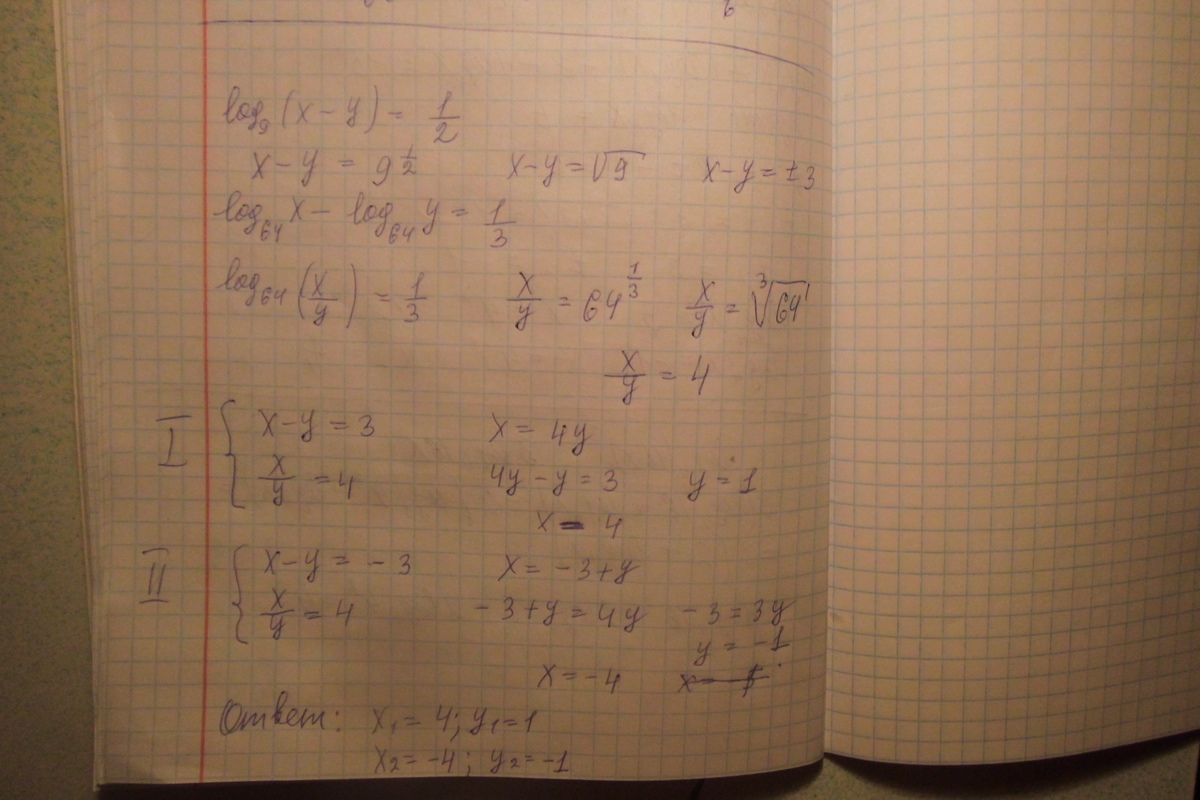 log₉(x − y) = 1/2
x − y = 9^(1/2) x − y = √9 x − y = ±3
log₆₄ x − log₆₄ y = 1/3
log₆₄ (x/y) = 1/3 x/y = 64^(1/3) x/y = ∛64
x/y = 4
I { x − y = 3 x = 4y
x/y = 4 4y − y = 3 y = 1
x = 4
II { x − y = −3 x = −3+y
x/y = 4 −3+y = 4y −3 = 3y
y = −1
x = −4
Ответ: x₁ = 4; y₁ = 1
x₂ = −4; y₂ = −1